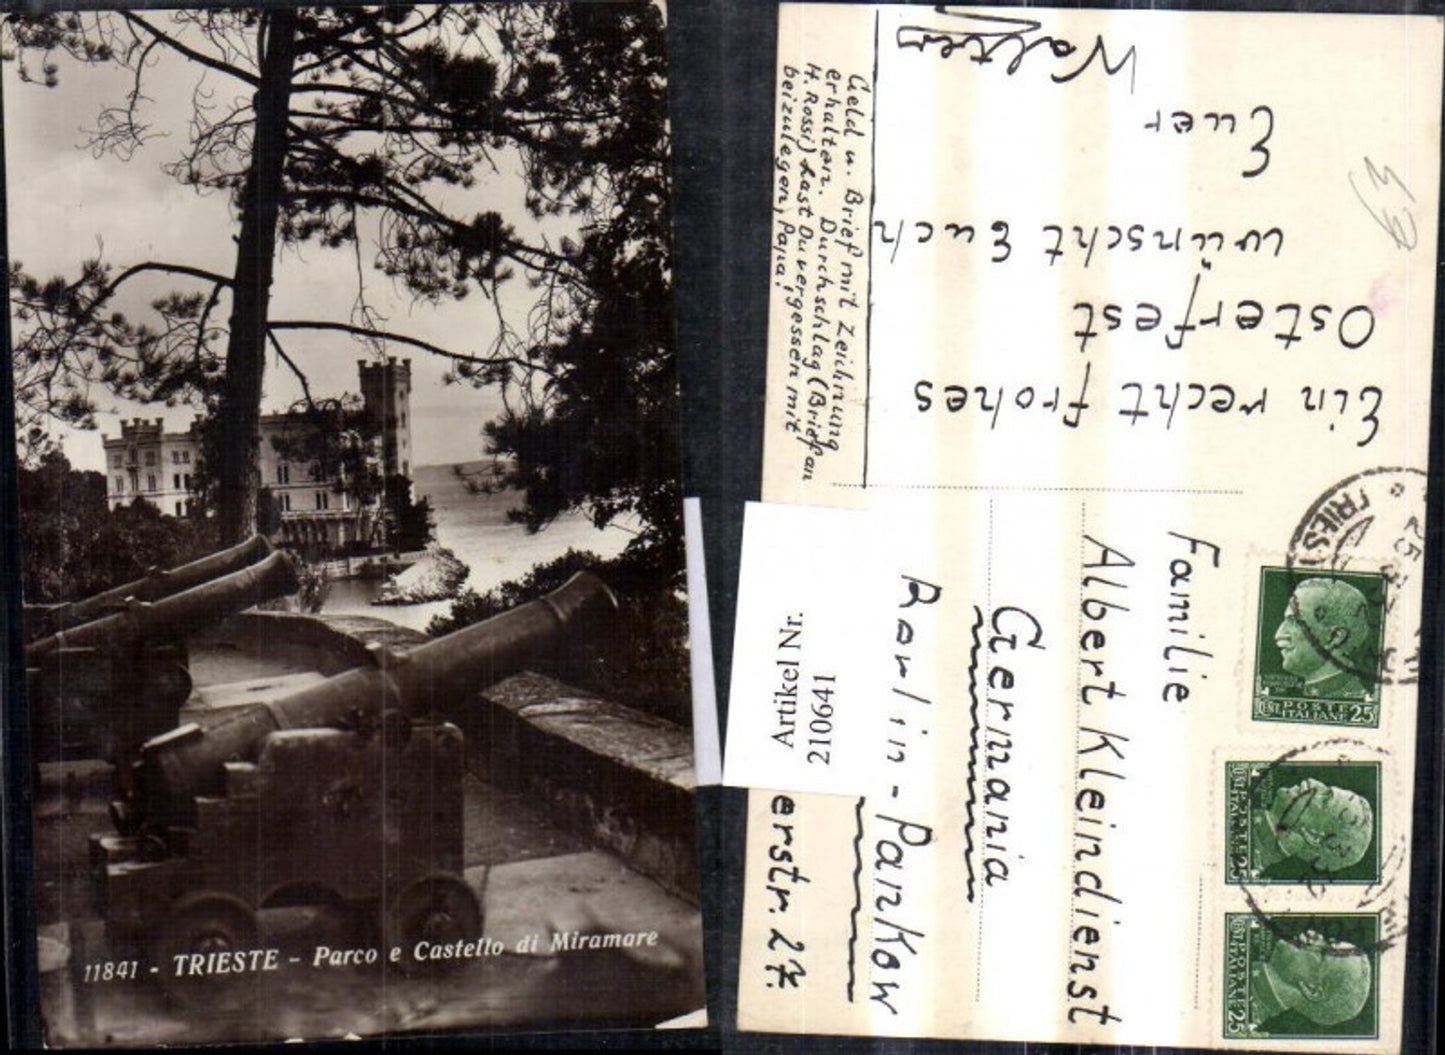 11841 - TRIESTE - Parco e Castello di Miramare
Ein recht frohes
Osterfest
wünscht Euch
Euer
Walter
Geld u. Brief mit Zeichnung
erhalten. Durchschlag (Brief an
H. Rossi) hast Du vergessen mit
beizulegen, Papa!
Familie
Albert Kleindienst
Germania
Berlin - Pankow
erstr. 27.
Artikel Nr.
2100641
TRIES
POSTE
ITALIANE 25
POSTE
ITALIANE 25
POSTE
ITALIANE 25